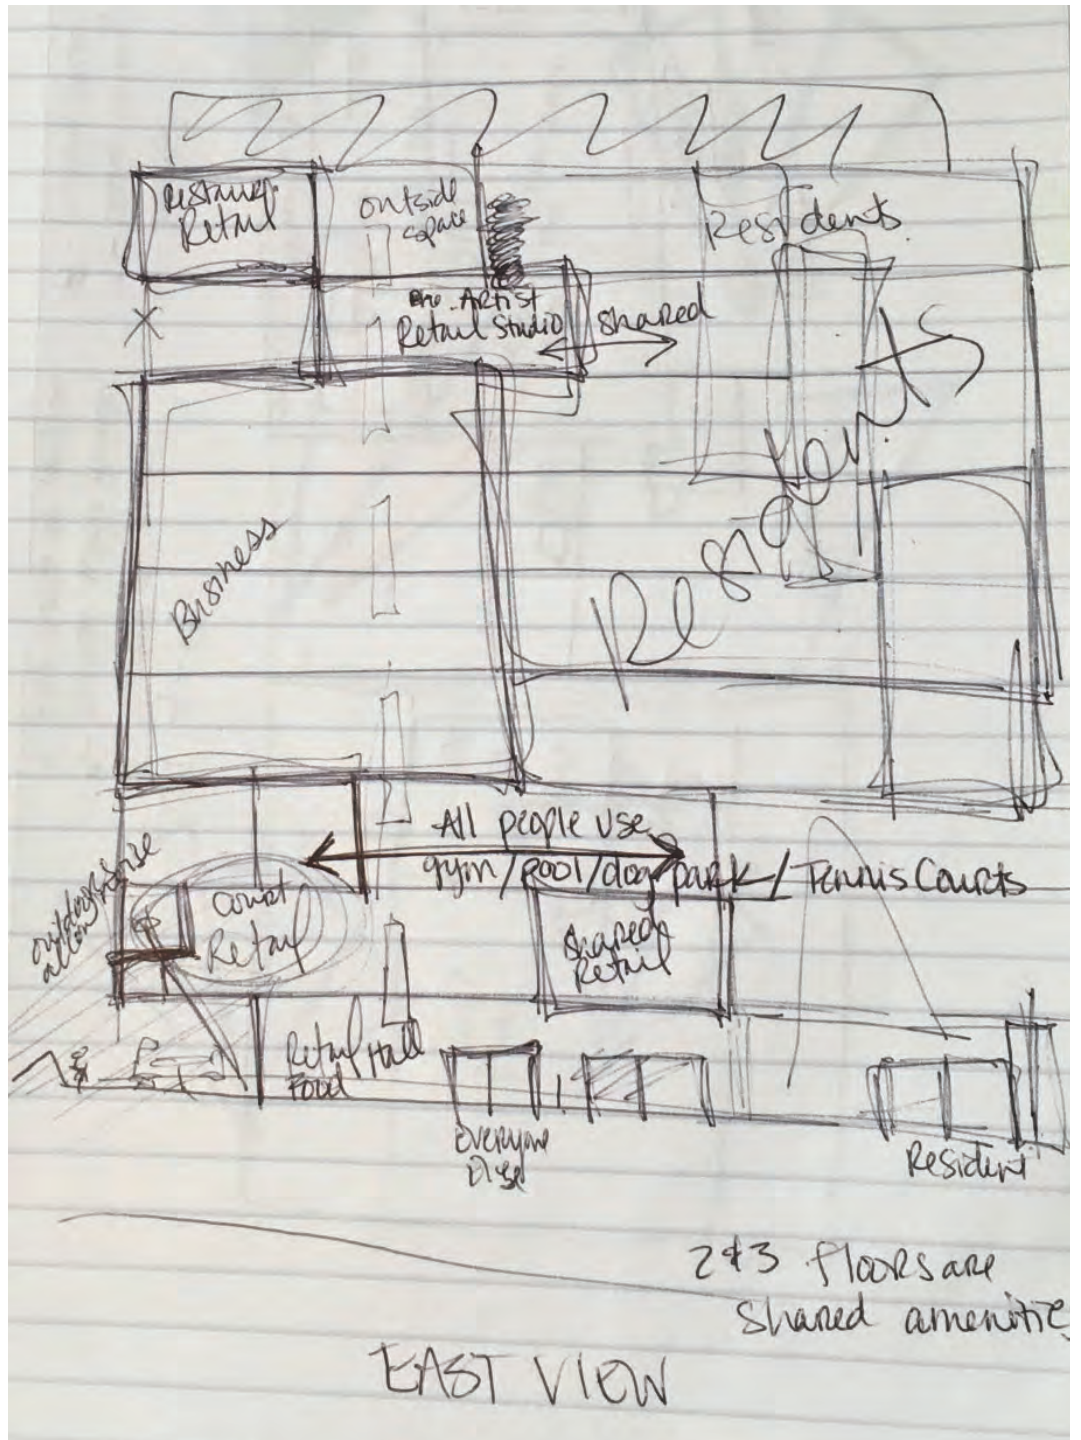 Retail
outside
space
Residents
Artist
Retail Studio
shared
Residents
Business
All people use
gym/pool/dog park/Tennis Courts
outdoors
Court
Retail
Shared
Retail
Retail Hall
Food
Everyone
Resident
2 & 3 floors are
shared amenitie
EAST VIEW